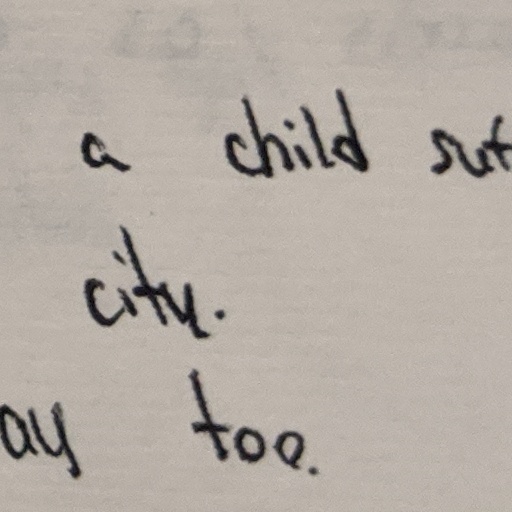 a child suf
city.
ay too.